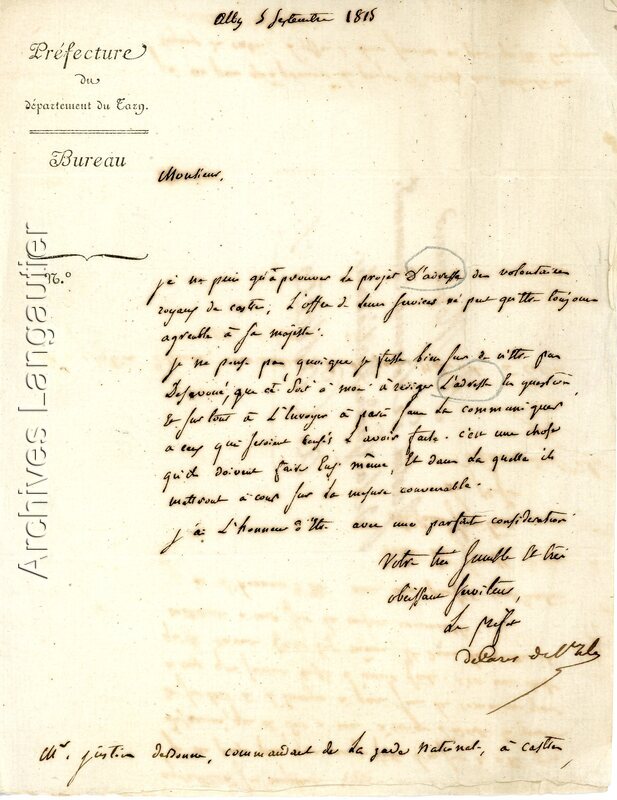 Alby 5 Septembre 1815
Préfecture
du
département du Tarn.
Bureau
N.º
Monsieur,
je ne puis qu'aprouver le projet D'adresse des volontaires
royaux de castres, L'offre de Leurs services ne peut qu'etre toujours
agreable à sa majesté.
je ne pense pas, quoique je fusse bien sur de n'être pas
Desavoué, que ce soit à moi à rediger L'adresse en question,
Et sur tout à L'Envoyer à paris sans La communiquer
a ceux qui seroient censés L'avoir faite. c'est une chose
qu'ils doivent faire Eux même, Et dans La quelle ils
mettront à coup sur La mesure convenable.
j'ai L'honneur d'Etre avec une parfaite consideration
Votre très humble Et très
obeissant serviteur,
Le prefet
Mr. justin dessonne, commandant de La garde National, à castres,
Archives Langautier